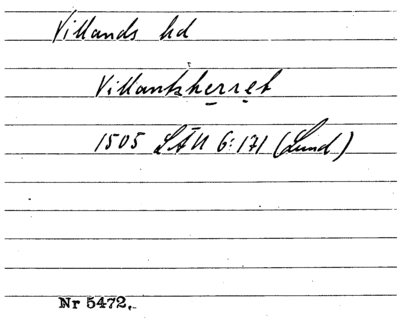 Villands hd
Villantzherret
1505 LÄU 6:171 (Lund)
Nr 5472.